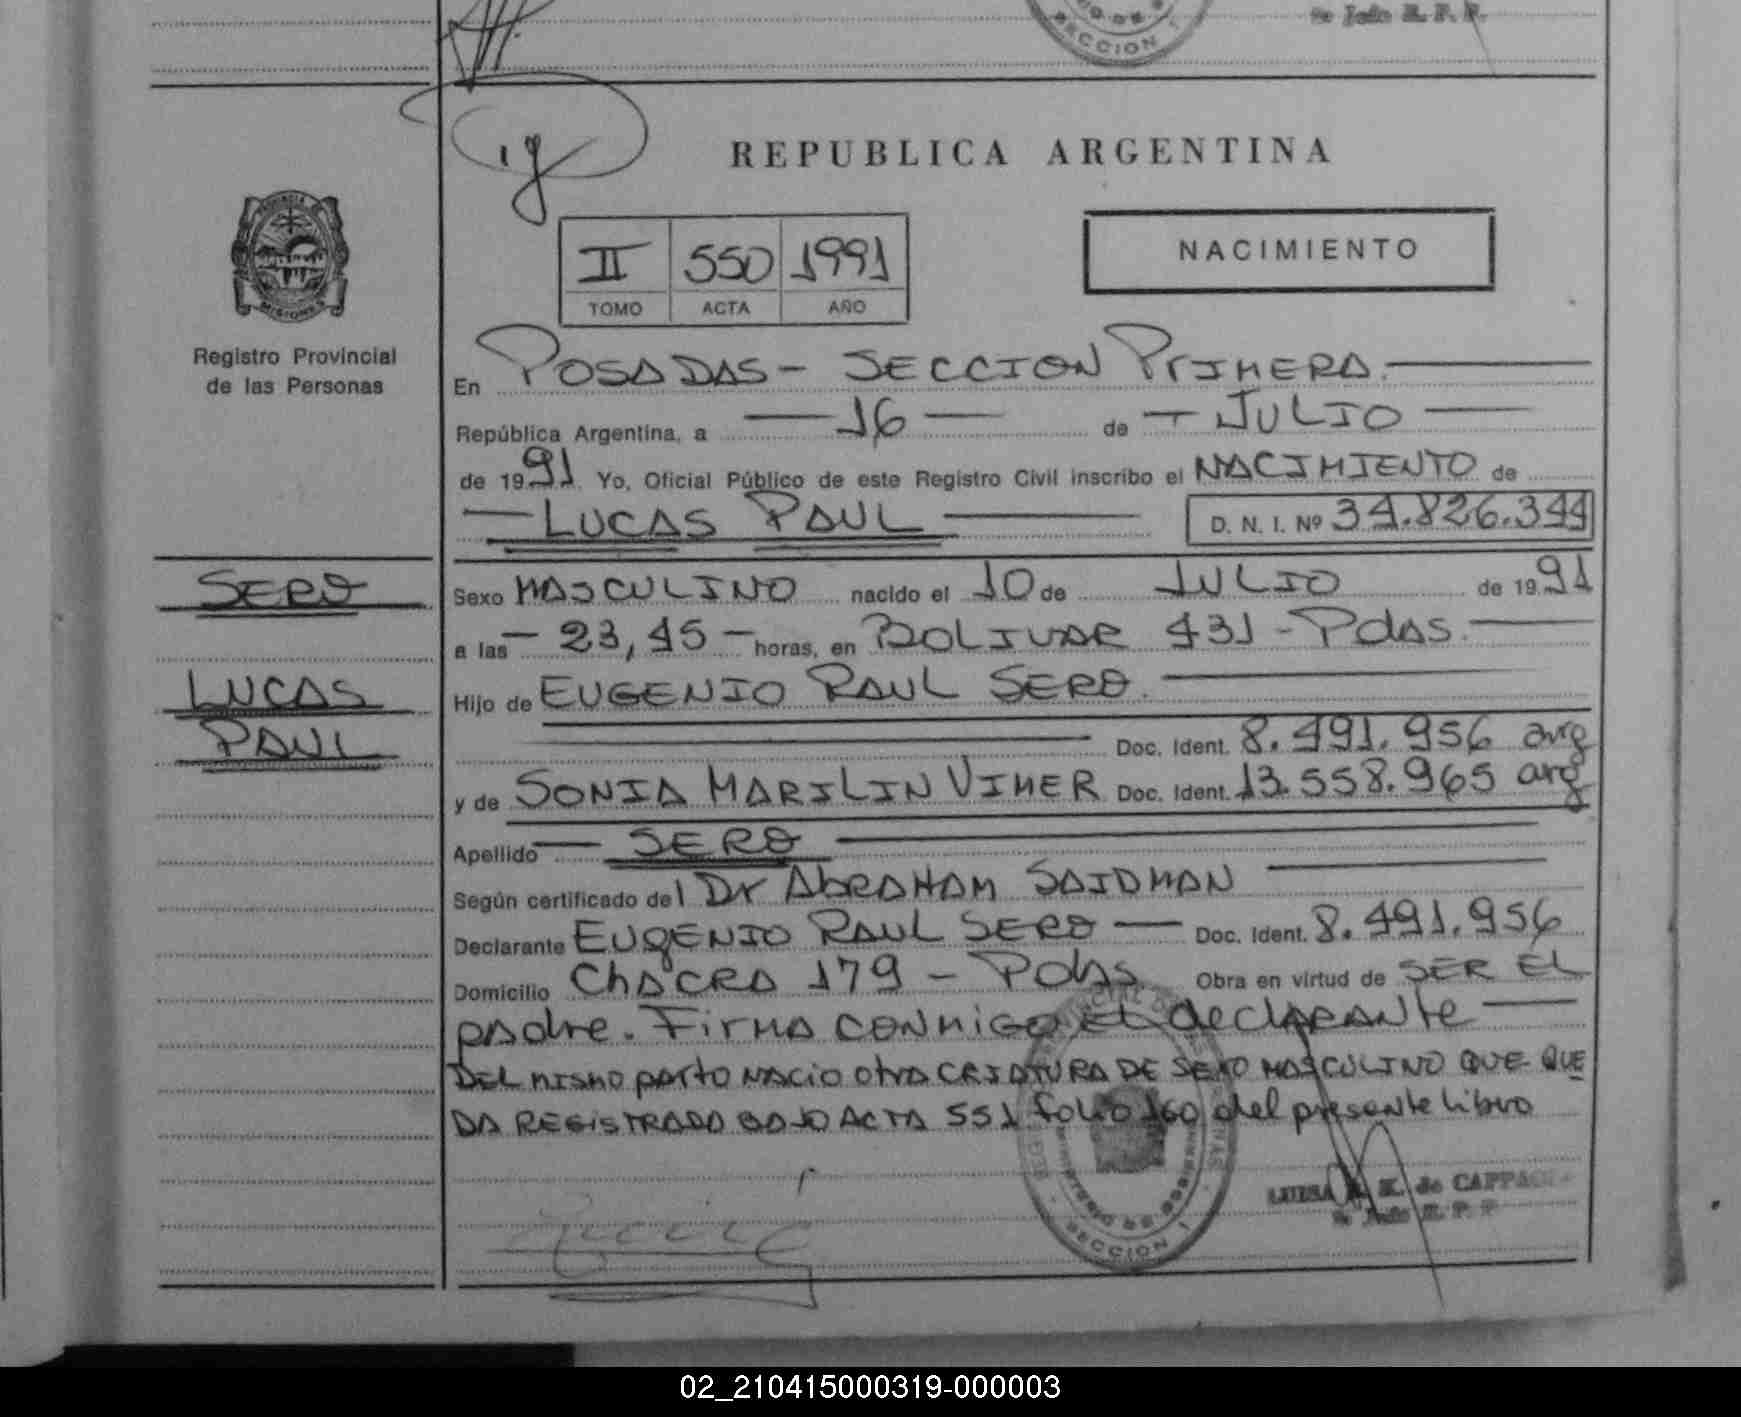 SECCION 1
REPUBLICA ARGENTINA
PROVINCIA DE
MISIONES
II 550 1991
TOMO ACTA AÑO
NACIMIENTO
Registro Provincial
de las Personas
En POSADAS - SECCION PRIMERA.
República Argentina, a - 16 - de - JULIO
de 1991 Yo, Oficial Público de este Registro Civil inscribo el NACIMIENTO de
LUCAS PAUL D. N. I. Nº 34.826.344
SERO
LUCAS
PAUL
Sexo MASCULINO nacido el 10 de JULIO de 1991
a las - 23,45 - horas, en BOLIVAR 431 - Pdas.
Hijo de EUGENIO RAUL SERO.
Doc. Ident. 8.491.956 arg
y de SONIA MARILIN VIMER Doc. Ident. 13.558.965 arg
Apellido SERO
Según certificado del Dr ABRAHAM SAIDMAN
Declarante EUGENIO RAUL SERO - Doc. Ident. 8.491.956
Domicilio ChACRA 179 - Pdas. Obra en virtud de SER EL
padre. FirMA CONMIGO EL declARANte
DEL MISMO parto NACIO otra CRIATURA DE SEXO MASCULINO QUE QUE
DA REGISTRADA BAJO ACTA 551 folio 160 del presente libro
LUISA K. de
SECCION 1
02_210415000319-000003